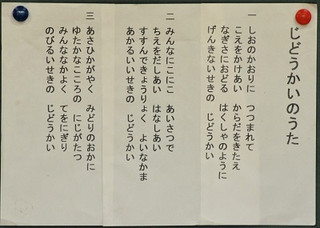 じどうかいのうた
一 しおのかおりに つつまれて
こえをかけあい からだをきたえ
なぎさにおどる はくしゃのように
げんきないせきの じどうかい
二 みんなにこにこ あいさつで
ちえをだしあい はなしあい
すすんできょうりょく よいなかま
あかるいいせきの じどうかい
三 あさひかがやく みどりのおかに
ゆたかなこころの にじがたつ
みんななかよく てをにぎり
のびるいせきの じどうかい